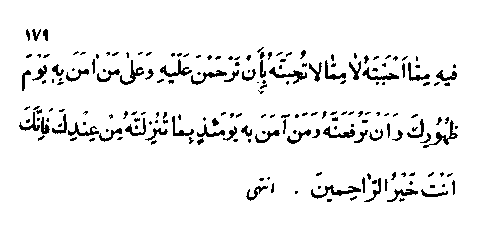 ١٧٩
فيهِ مِمّا اَحْبَبْتَهُ لا مِمّا لا تُحِبَنَّهُ بِأَنْ تَرْحَمَنَ عَلَيْهِ وَعَلىٰ مَنْ اٰمَنَ بِهِ يَوْمَ
ظُهُورِكَ وَاَنْ تَرْفَعَنَّهُ وَمَنْ آمَنَ بِهِ يَوْمَئِذٍ بِمٰا تُنْزِلَنَّهُ مِنْ عِنْدِكَ فَاِنَّكَ
اَنْتَ خَيْرُ الرّٰاحِمينَ . انتهى